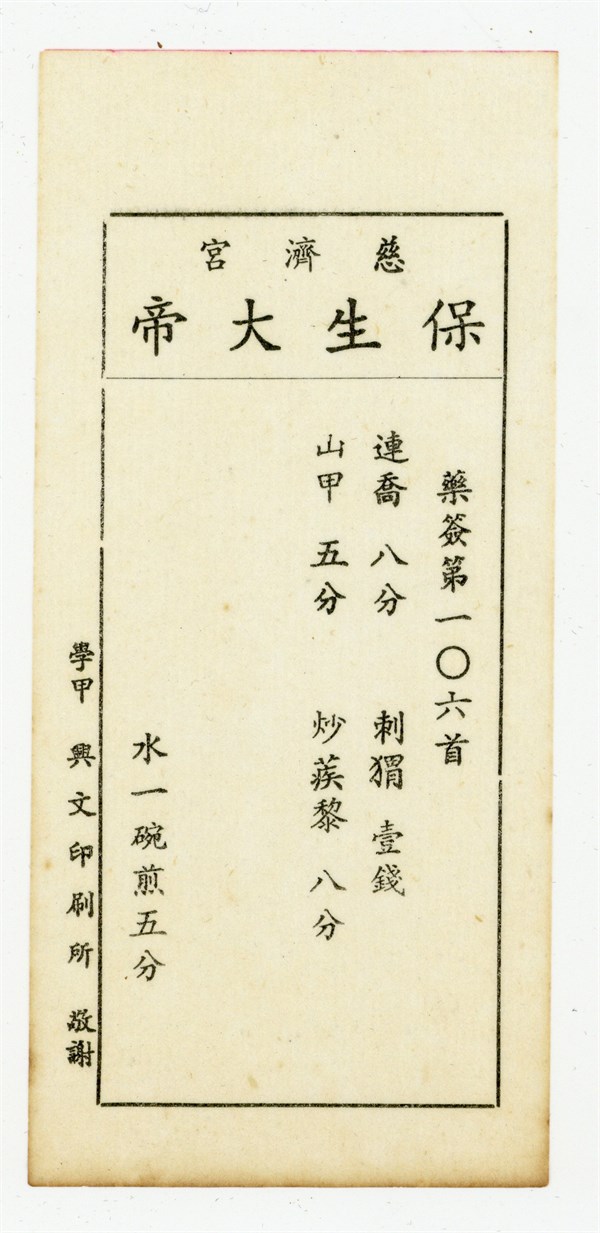 慈濟宮
保生大帝
藥簽第一〇六首
連喬 八分 刺猬 壹錢
山甲 五分 炒蒺黎 八分
水一碗煎五分
學甲 興文印刷所 敬謝